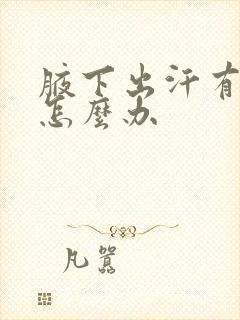 腋下出汗有
怎麼办
凡囂